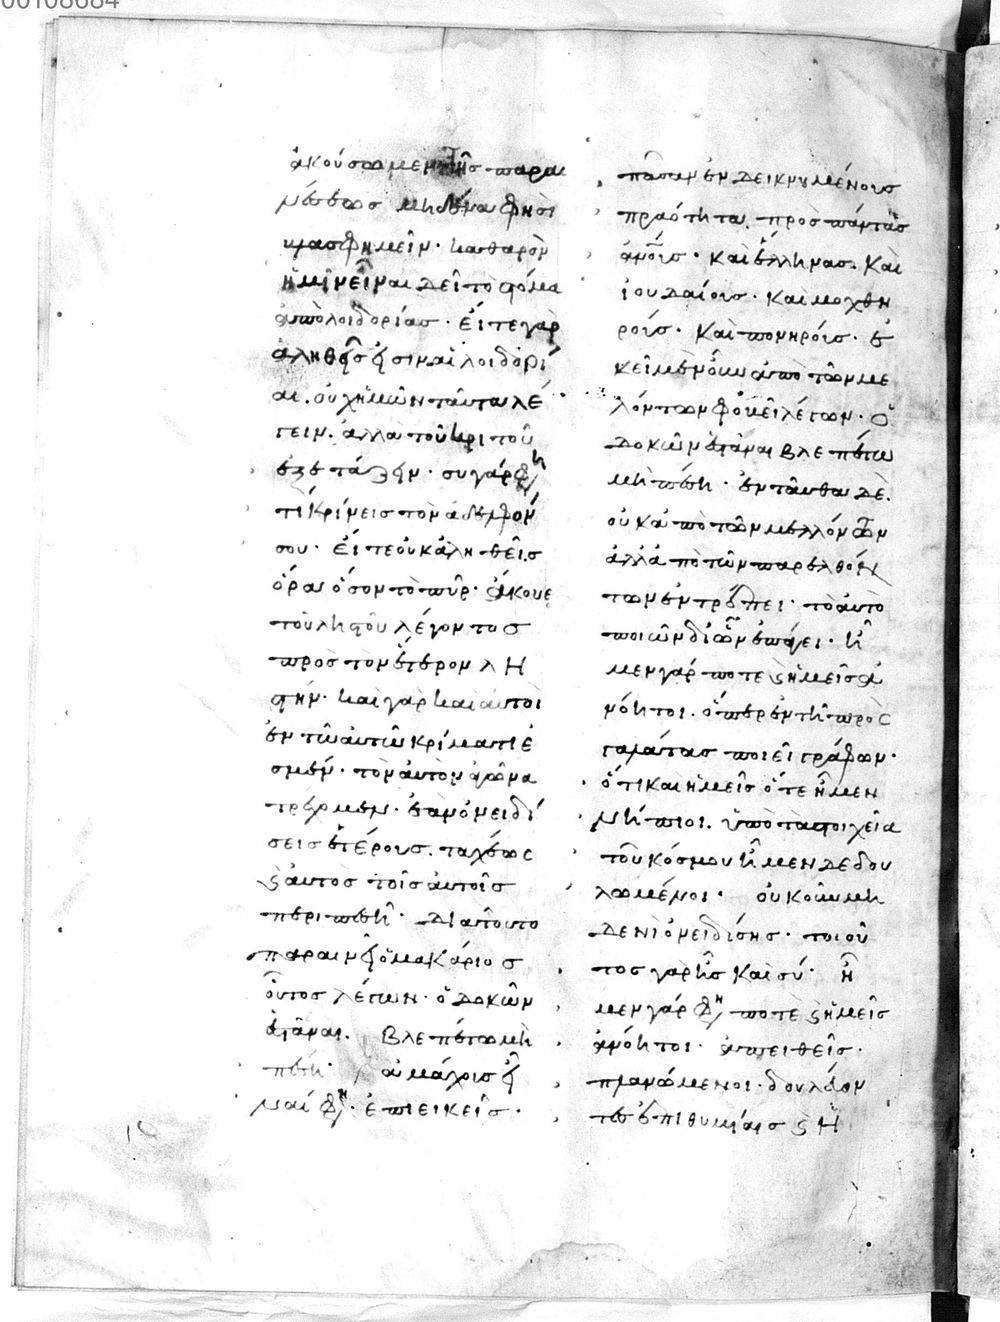 00108684
ἀκούσωμεν τῆς παραι
νέσεως μηδένα φησὶ
βλασφημεῖν· καθαρὸν
ἡμῖν εἶναι δεῖ τὸ στόμα
ἀπὸ λοιδορίας· εἴτε γὰρ
ἀληθεῖς εἰσιν αἱ λοιδορί
αι. οὐχ ἡμῶν ταῦτα λέ
γειν. ἀλλὰ τοῦ κριτοῦ
ἐξετάζειν. σὺ γάρ φη
τί κρίνεις τὸν ἀδελφόν
σου· εἴτε οὐκ ἀληθεῖς
ὅρα ὅσον τὸ πῦρ· ἄκουε
τοῦ ληστοῦ λέγοντος
πρὸς τὸν ἕτερον λη
στήν· καὶ γὰρ καὶ αὐτοὶ
ἐν τῶ αὐτῶ κρίματι ἐ
σμέν· τὸν αὐτὸν ἀγῶνα
τρέχομεν. ἐὰν ὀνειδί
σεις ἑτέρους. ταχέως
ϛ αὐτὸς τοῖς αὐτοῖς
περιπεσῆ· διὰ τοῦτο
παραινεῖ ὁ μακάριος
οὗτος λέγων· ὁ δοκῶν
ἑστάναι. βλεπέτω μὴ
πέση· ἀμάχους εἶ
ναί φη· ἐπιεικεῖς·
πᾶσαν ἐνδεικνυμένους
πραότητα. πρὸς πάντας
ἀνους· καὶ ἕλληνας. καὶ
ἰουδαίους. καὶ μοχθη
ροὺς· καὶ πονηρούς· ἐ
κεῖ μὲν οὖν ἀπὸ τῶν με
λόντων φοβεῖ λέγων· ὁ
δοκῶν ἑστάναι βλεπέτω
μὴ πέση· ἐνταῦθα δὲ.
οὐκ ἀπὸ τῶν μελλόντων
ἀλλ' ἀπὸ τῶν παρελθόν
των ἐντρέπει· τὸ αὐτὸ
ποιῶν δι' ὧν ἐπάγει· ἦ
μεν γάρ ποτε ϛ ἡμεῖς ἀ
νόητοι. ὅπερ ἐν τῆ πρὸς
γαλάτας ποιεῖ γράφων·
ὅτι καὶ ἡμεῖς ὅτε ἦμεν
νήπιοι. ὑπὸ τὰ στοιχεῖα
τοῦ κόσμου ἦμεν δεδου
λωμένοι· οὐκοῦν μη
δενὶ ὀνειδίσης· τοιοῦ
τος γὰρ ἦς καὶ σύ· ἦ
μεν γάρ φη ποτε ϛ ἡμεῖς
ἀνόητοι· ἀπειθεῖς·
πλανώμενοι· δουλεύον
τες ἐπιθυμίαις ϛ ἡ